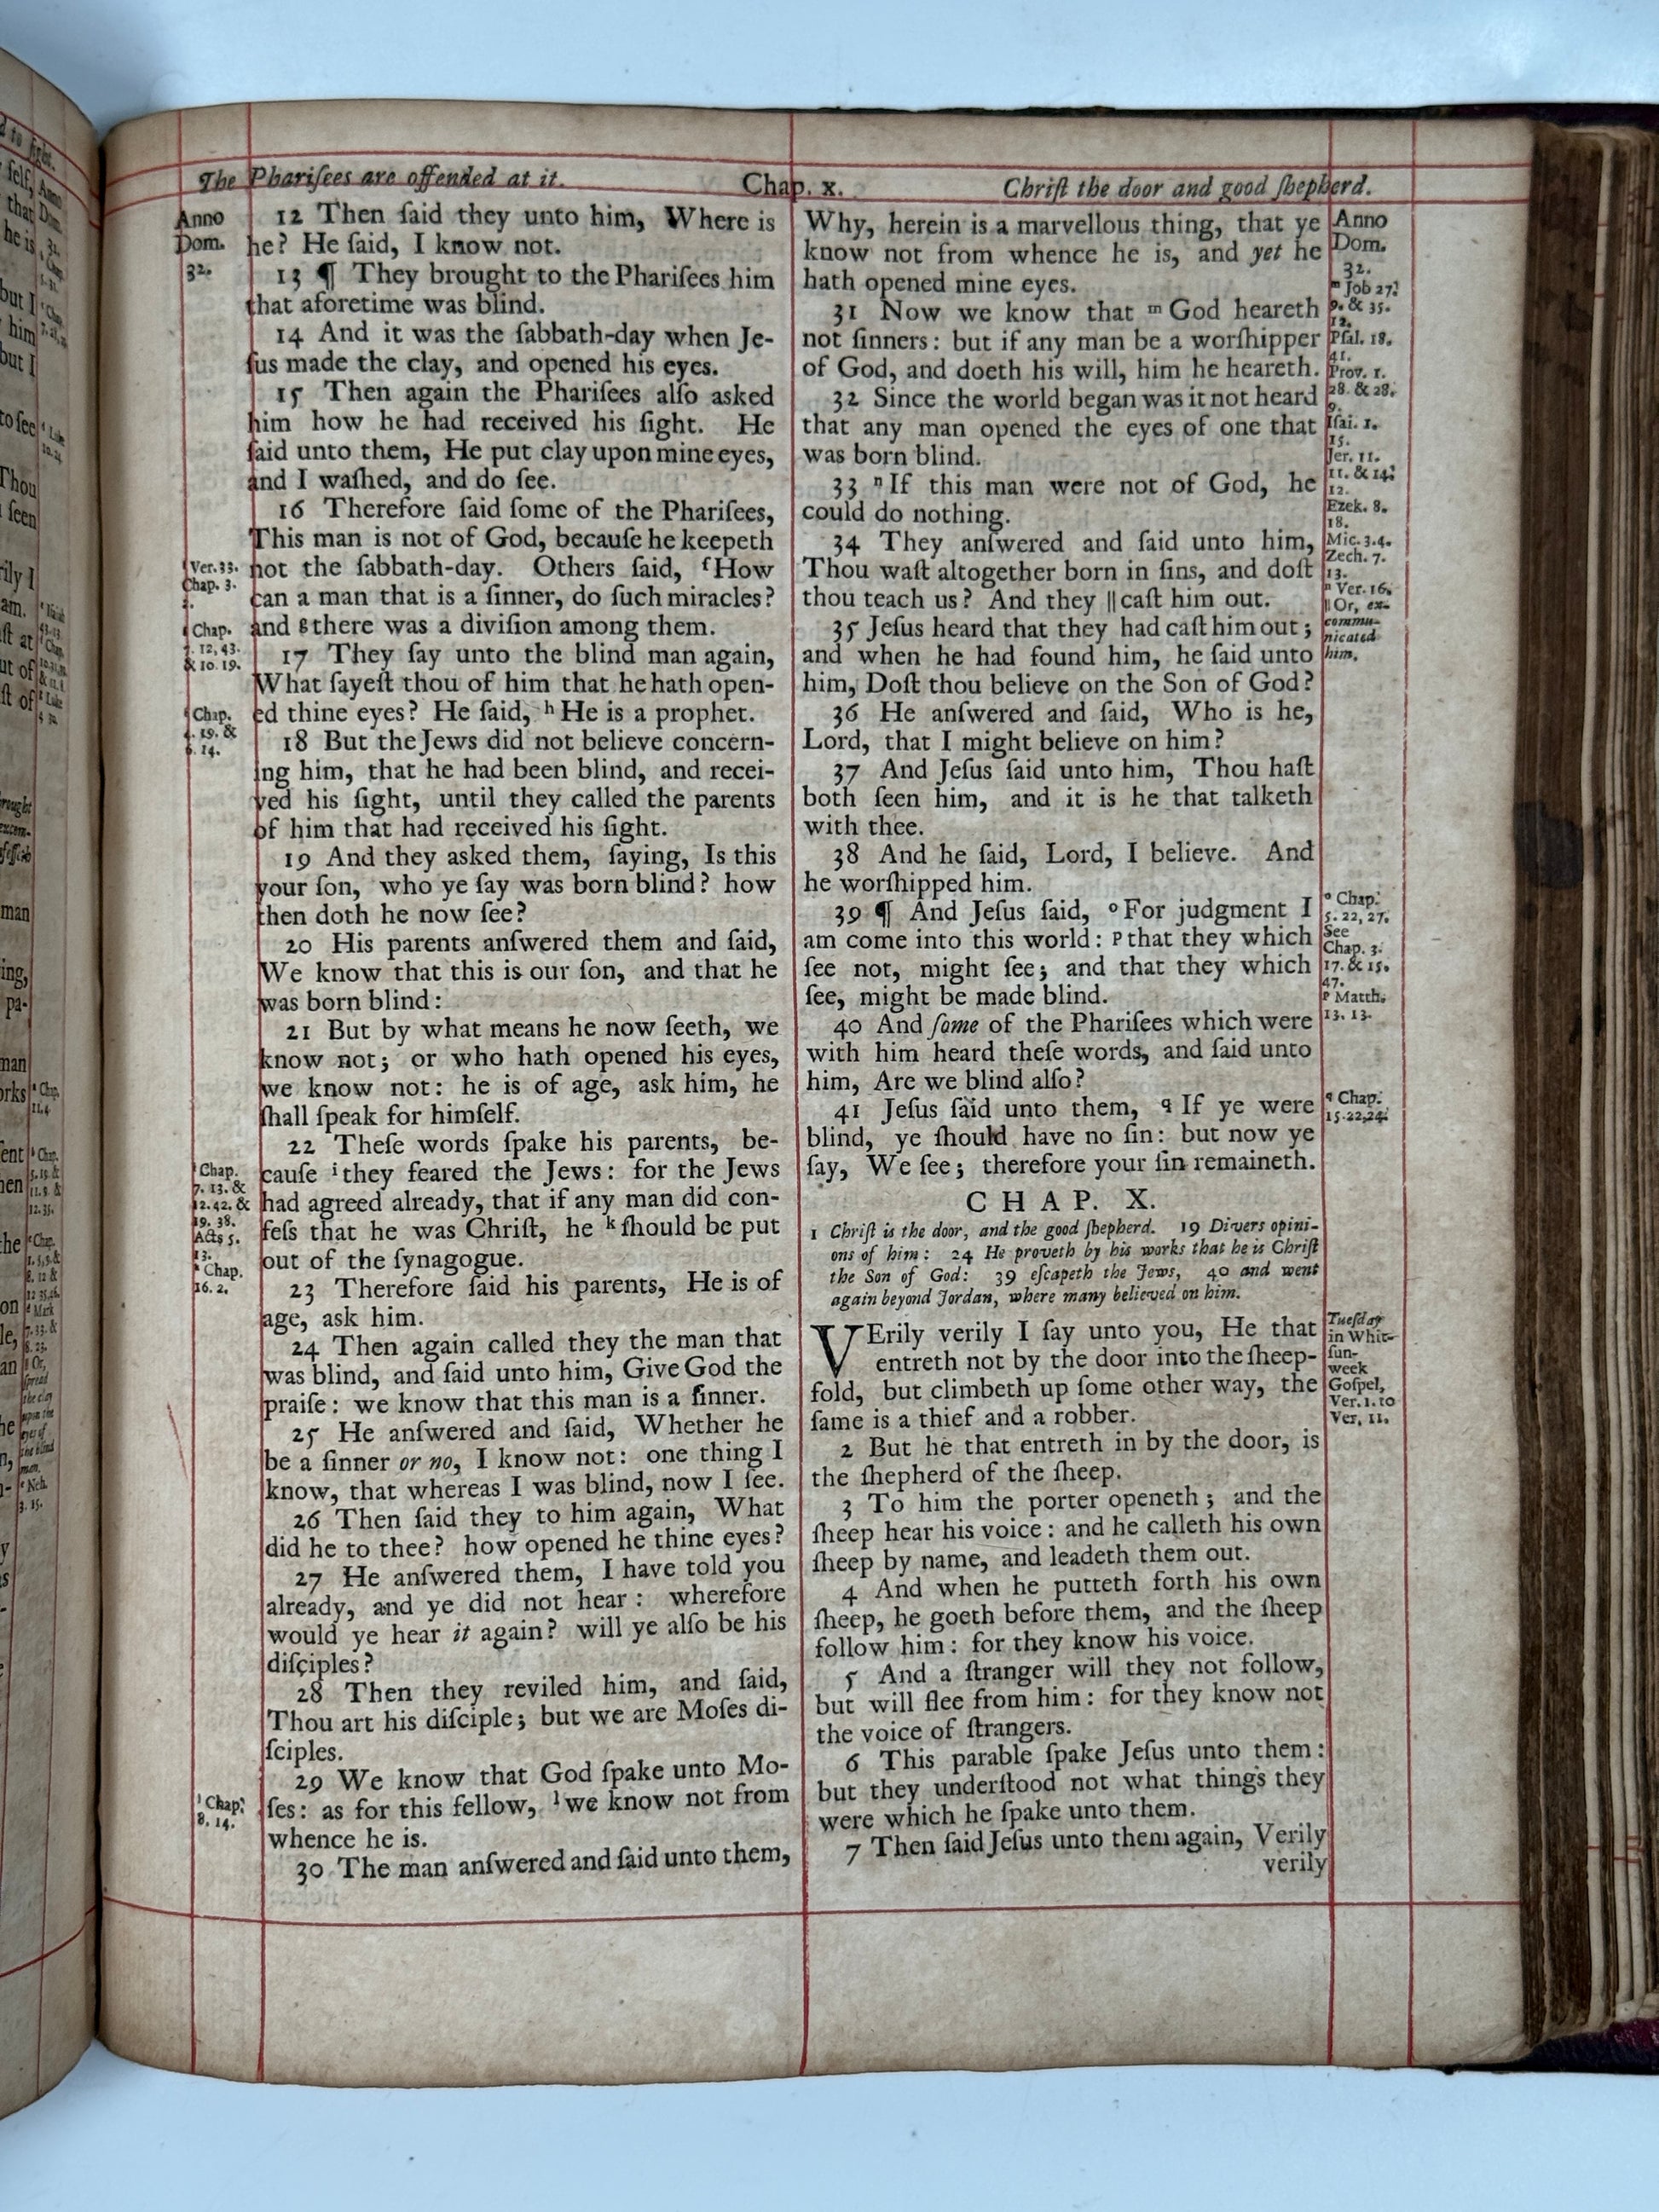 The Phariſees are offended at it.
Chap. x.
Chriſt the door and good ſhepherd.
Anno
Dom.
32.
12 Then ſaid they unto him, Where is
he? He ſaid, I know not.
13 ¶ They brought to the Phariſees him
that aforetime was blind.
14 And it was the ſabbath-day when Je-
ſus made the clay, and opened his eyes.
15 Then again the Phariſees alſo asked
him how he had received his ſight. He
ſaid unto them, He put clay upon mine eyes,
and I waſhed, and do ſee.
16 Therefore ſaid ſome of the Phariſees,
This man is not of God, becauſe he keepeth
not the ſabbath-day. Others ſaid, f How
can a man that is a ſinner, do ſuch miracles?
and g there was a diviſion among them.
17 They ſay unto the blind man again,
What ſayeſt thou of him that he hath open-
ed thine eyes? He ſaid, h He is a prophet.
18 But the Jews did not believe concern-
ing him, that he had been blind, and recei-
ved his ſight, until they called the parents
of him that had received his ſight.
19 And they asked them, ſaying, Is this
your ſon, who ye ſay was born blind? how
then doth he now ſee?
20 His parents anſwered them and ſaid,
We know that this is our ſon, and that he
was born blind:
21 But by what means he now ſeeth, we
know not; or who hath opened his eyes,
we know not: he is of age, ask him, he
ſhall ſpeak for himſelf.
22 Theſe words ſpake his parents, be-
cauſe i they feared the Jews: for the Jews
had agreed already, that if any man did con-
feſs that he was Chriſt, he k ſhould be put
out of the ſynagogue.
23 Therefore ſaid his parents, He is of
age, ask him.
24 Then again called they the man that
was blind, and ſaid unto him, Give God the
praiſe: we know that this man is a ſinner.
25 He anſwered and ſaid, Whether he
be a ſinner or no, I know not: one thing I
know, that whereas I was blind, now I ſee.
26 Then ſaid they to him again, What
did he to thee? how opened he thine eyes?
27 He anſwered them, I have told you
already, and ye did not hear: wherefore
would ye hear it again? will ye alſo be his
diſciples?
28 Then they reviled him, and ſaid,
Thou art his diſciple; but we are Moſes di-
ſciples.
29 We know that God ſpake unto Mo-
ſes: as for this fellow, l we know not from
whence he is.
30 The man anſwered and ſaid unto them,
Ver. 33.
Chap. 3.
Chap.
7. 12, 43.
& 10. 19.
Chap.
4. 19. &
6. 14.
Chap.
7. 13. &
12. 42. &
19. 38.
Acts 5.
13.
k Chap.
16. 2.
l Chap.
8. 14.
Why, herein is a marvellous thing, that ye
know not from whence he is, and yet he
hath opened mine eyes.
31 Now we know that m God heareth
not ſinners: but if any man be a worſhipper
of God, and doeth his will, him he heareth.
32 Since the world began was it not heard
that any man opened the eyes of one that
was born blind.
33 n If this man were not of God, he
could do nothing.
34 They anſwered and ſaid unto him,
Thou waſt altogether born in ſins, and doſt
thou teach us? And they || caſt him out.
35 Jeſus heard that they had caſt him out;
and when he had found him, he ſaid unto
him, Doſt thou believe on the Son of God?
36 He anſwered and ſaid, Who is he,
Lord, that I might believe on him?
37 And Jeſus ſaid unto him, Thou haſt
both ſeen him, and it is he that talketh
with thee.
38 And he ſaid, Lord, I believe. And
he worſhipped him.
39 ¶ And Jeſus ſaid, o For judgment I
am come into this world: p that they which
ſee not, might ſee; and that they which
ſee, might be made blind.
40 And ſome of the Phariſees which were
with him heard theſe words, and ſaid unto
him, Are we blind alſo?
41 Jeſus ſaid unto them, q If ye were
blind, ye ſhould have no ſin: but now ye
ſay, We ſee; therefore your ſin remaineth.
CHAP. X.
1 Chriſt is the door, and the good ſhepherd. 19 Divers opini-
ons of him: 24 He proveth by his works that he is Chriſt
the Son of God: 39 eſcapeth the Jews, 40 and went
again beyond Jordan, where many believed on him.
VErily verily I ſay unto you, He that
entreth not by the door into the ſheep-
fold, but climbeth up ſome other way, the
ſame is a thief and a robber.
2 But he that entreth in by the door, is
the ſhepherd of the ſheep.
3 To him the porter openeth; and the
ſheep hear his voice: and he calleth his own
ſheep by name, and leadeth them out.
4 And when he putteth forth his own
ſheep, he goeth before them, and the ſheep
follow him: for they know his voice.
5 And a ſtranger will they not follow,
but will flee from him: for they know not
the voice of ſtrangers.
6 This parable ſpake Jeſus unto them:
but they underſtood not what things they
were which he ſpake unto them.
7 Then ſaid Jeſus unto them again, Verily
verily
Anno
Dom.
32.
m Job 27.
9. & 35.
12.
Pſal. 18.
41.
Prov. 1.
28. & 28.
9.
Iſai. 1.
15.
Jer. 11.
11. & 14.
12.
Ezek. 8.
18.
Mic. 3. 4.
Zech. 7.
13.
n Ver. 16.
|| Or, ex-
commu-
nicated
him.
o Chap.
5. 22, 27.
See
Chap. 3.
17. & 15.
47.
p Matth.
13. 13.
q Chap.
15. 22, 24.
Tueſday
in Whit-
ſun-
week
Goſpel,
Ver. 1. to
Ver. 11.